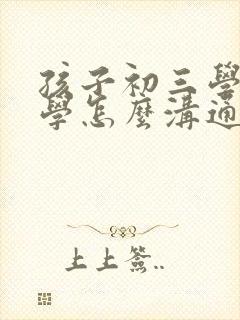 孩子初三學
學怎麼溝通
上上簽..